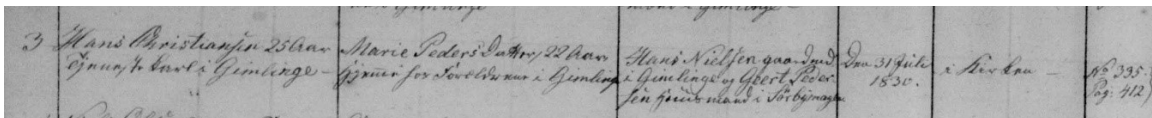 3 Hans Christiansen 25 Aar
Tjenestekarl i Gimlinge -
Marie Pedersdatter, 22 Aar
hjemme hos Forældrene i Gimlinge
Hans Nielsen gaardmd
i Gimlinge og Geert Peder-
sen huusmand i Sörbymagle
Den 31 Juli
1830.
i Kirken -
No 395.
Pag: 412)